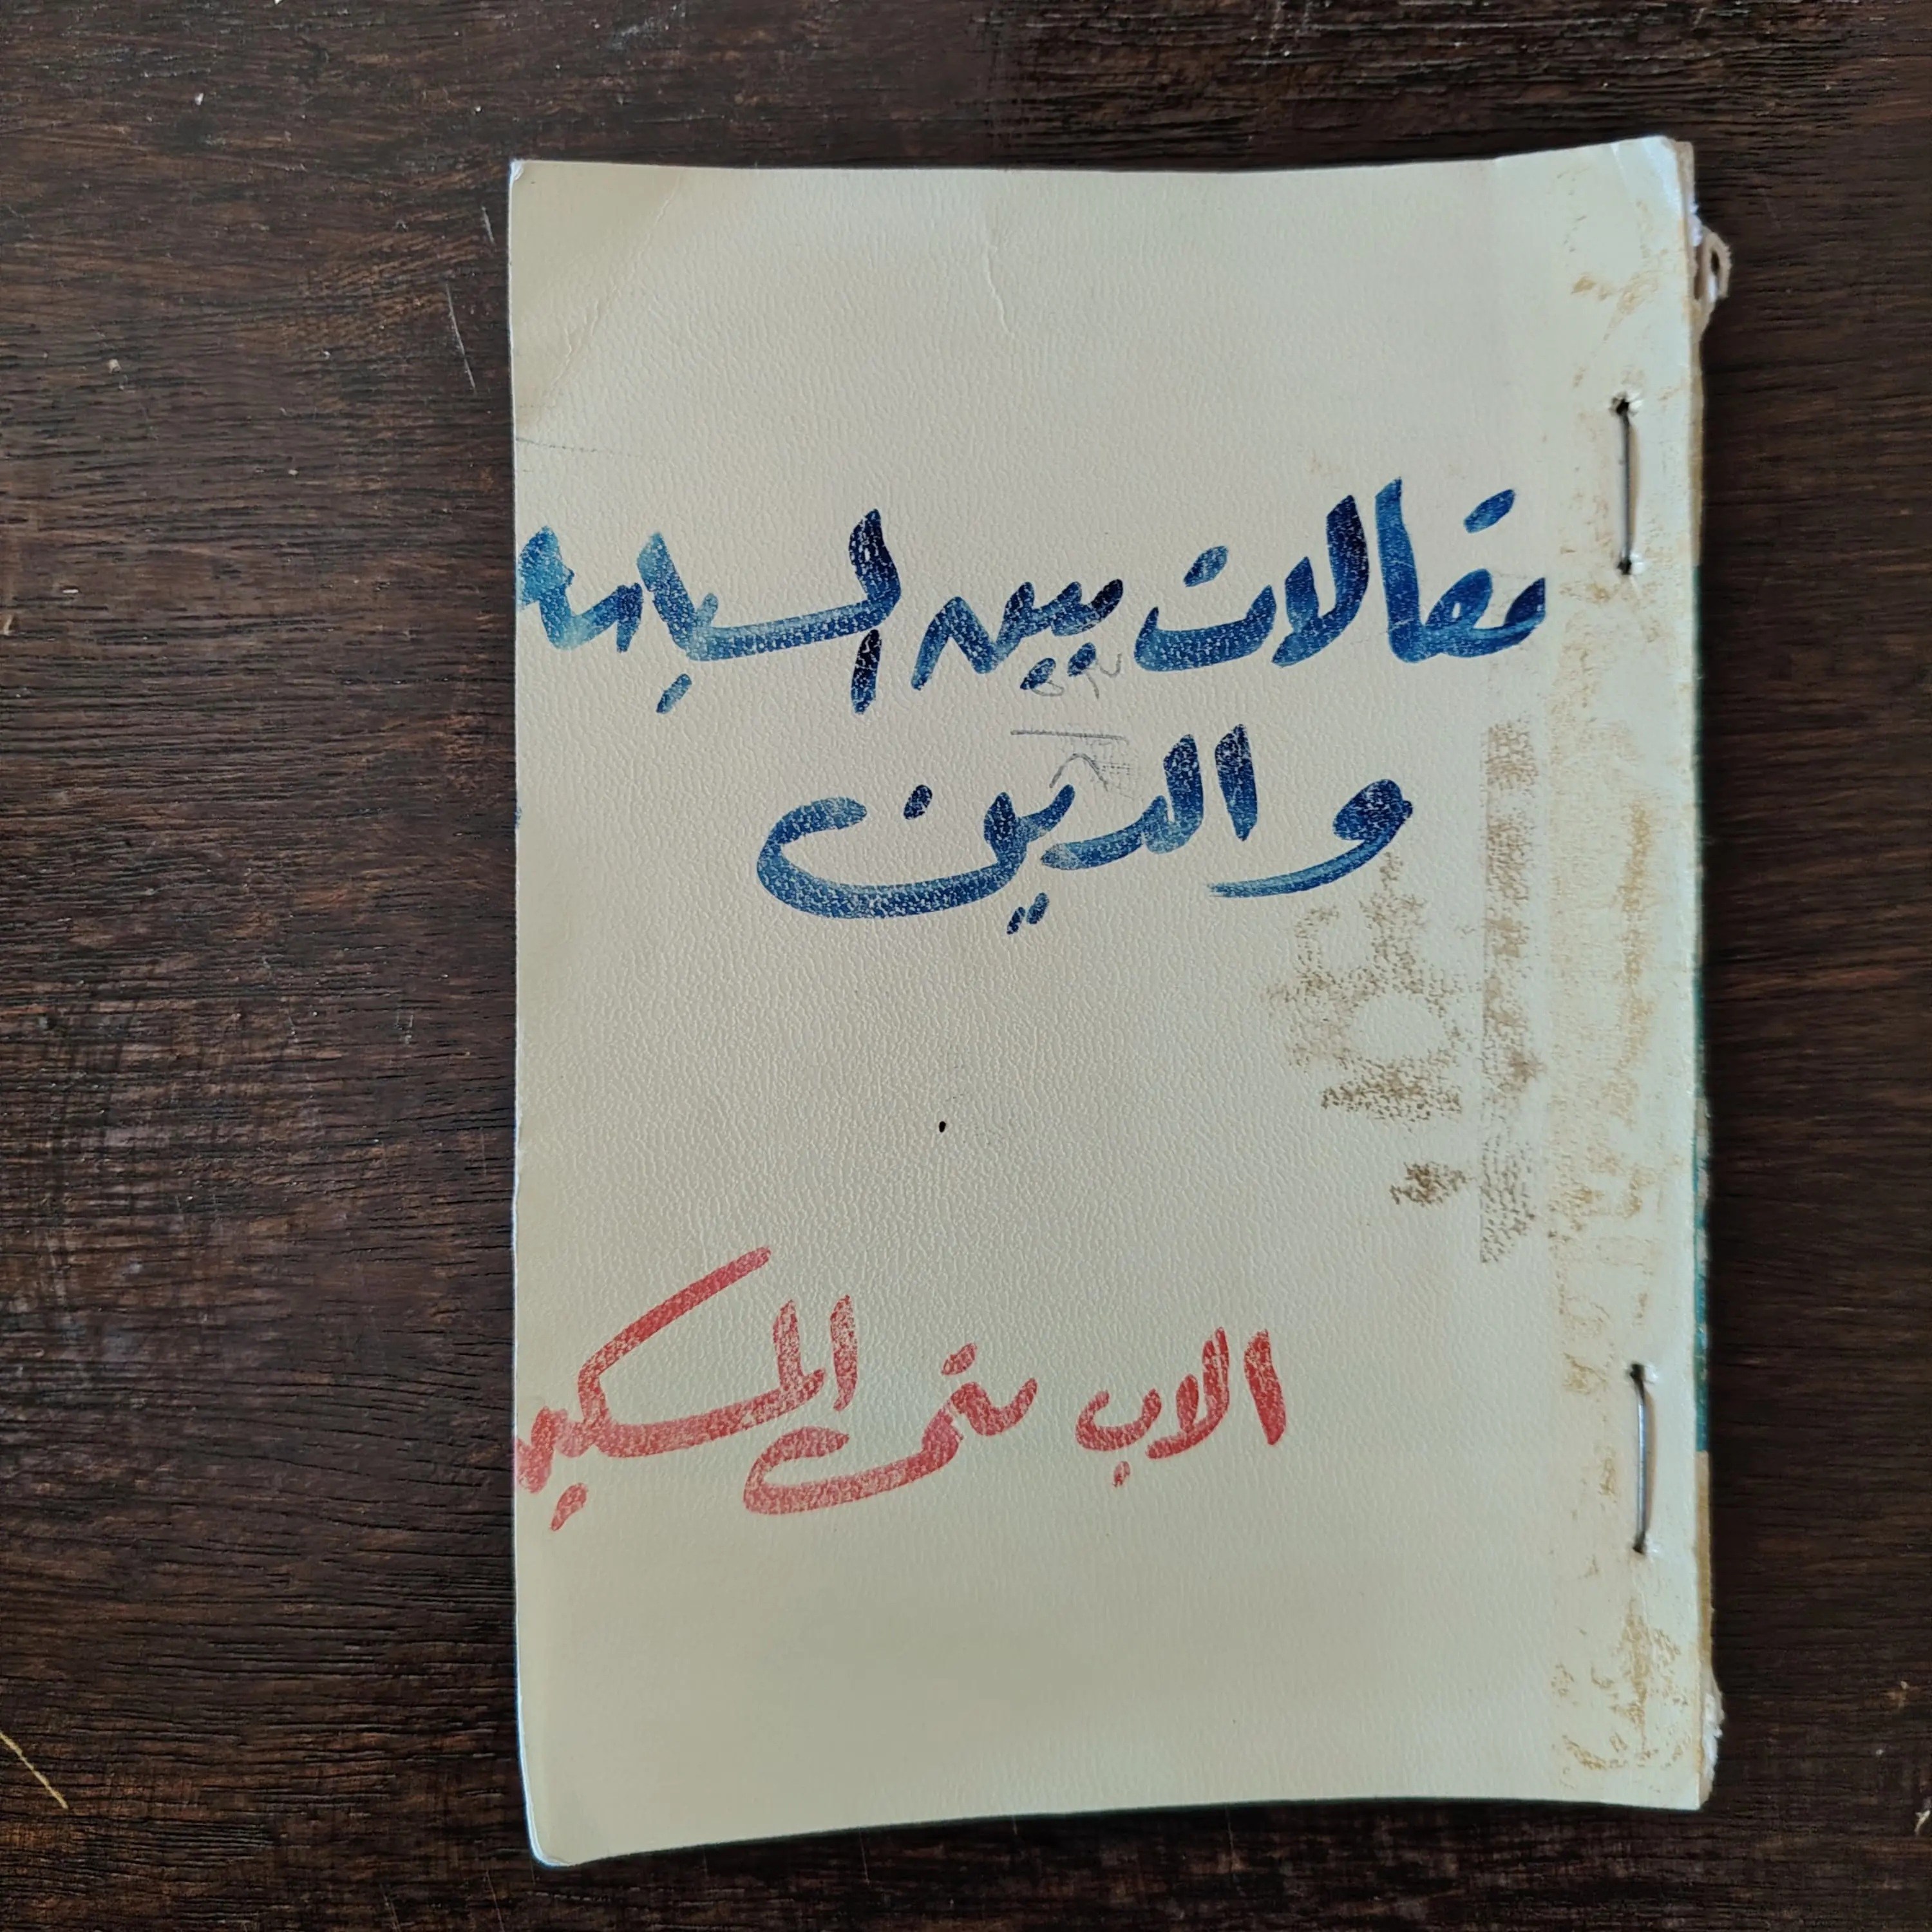 مقالات بين السياسة
و الدين
الاب متى المسكين